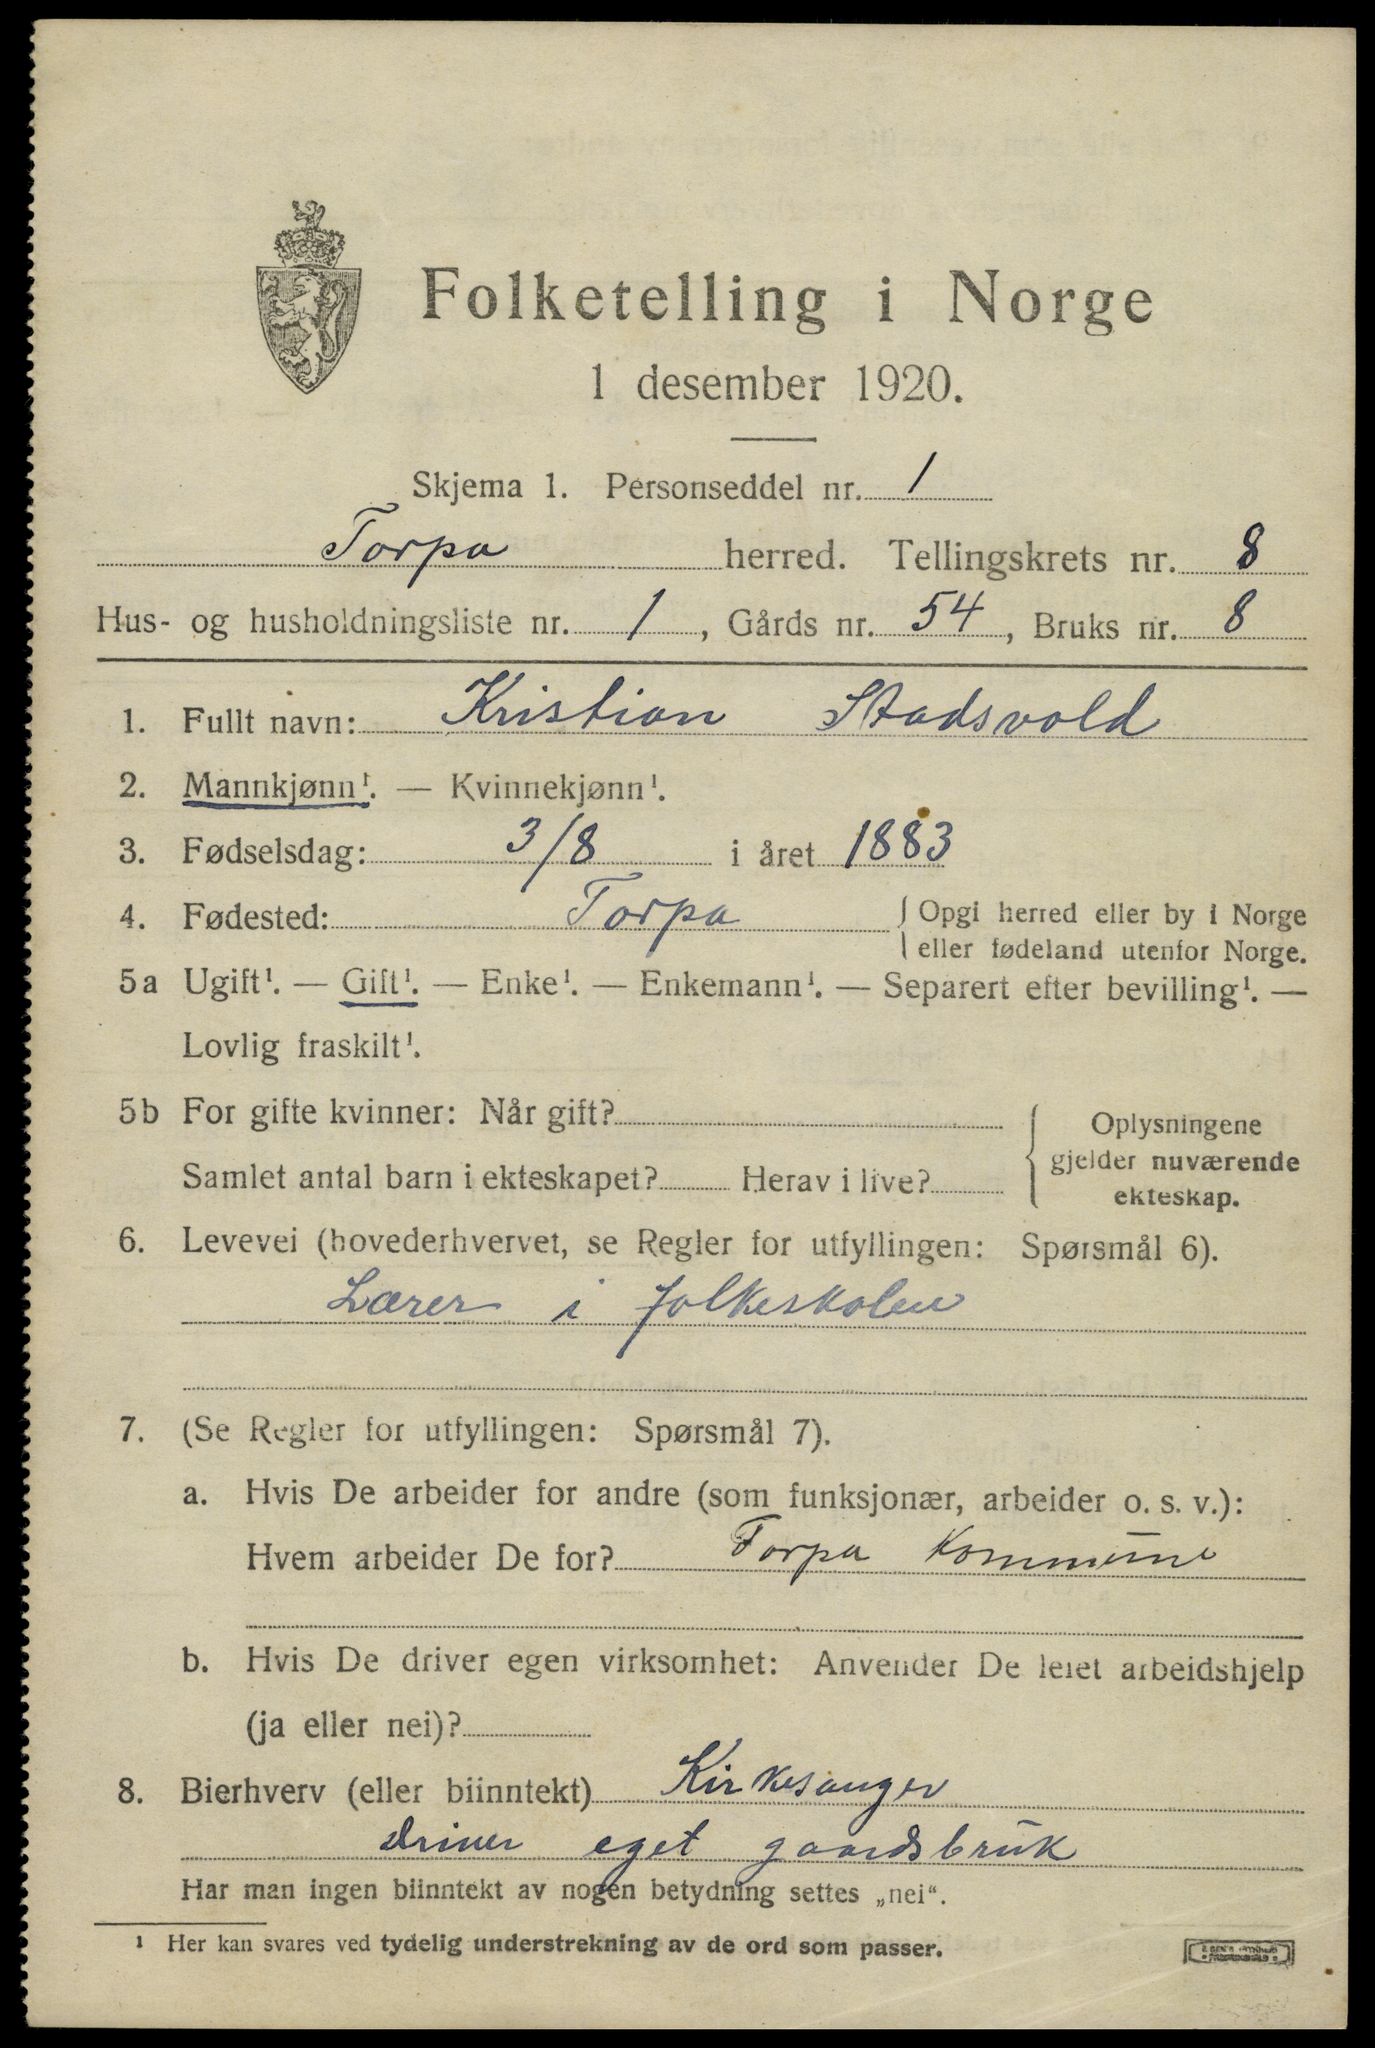 Folketelling i Norge
1 desember 1920.
Skjema 1. Personseddel nr. 1
Torpa herred. Tellingskrets nr. 8
Hus- og husholdningsliste nr. 1, Gårds nr. 54, Bruks nr. 8
1. Fullt navn: Kristian Stadsvold
2. Mannkjønn¹. — Kvinnekjønn¹.
3. Fødselsdag: 3/8 i året 1883
4. Fødested: Torpa { Opgi herred eller by i Norge
eller fødeland utenfor Norge.
5a Ugift¹. — Gift¹. — Enke¹. — Enkemann¹. — Separert efter bevilling¹. —
Lovlig fraskilt¹.
5b For gifte kvinner: Når gift?
Samlet antal barn i ekteskapet? Herav i live?
Oplysningene
gjelder nuværende
ekteskap.
6. Levevei (hovederhvervet, se Regler for utfyllingen: Spørsmål 6).
Lærer i folkeskolen
7. (Se Regler for utfyllingen: Spørsmål 7).
a. Hvis De arbeider for andre (som funksjonær, arbeider o. s. v.):
Hvem arbeider De for? Torpa Kommune
b. Hvis De driver egen virksomhet: Anvender De leiet arbeidshjelp
(ja eller nei)?
8. Bierhverv (eller biinntekt) Kirkesanger
driver eget gaardsbruk
Har man ingen biinntekt av nogen betydning settes „nei“.
¹ Her kan svares ved tydelig understrekning av de ord som passer.